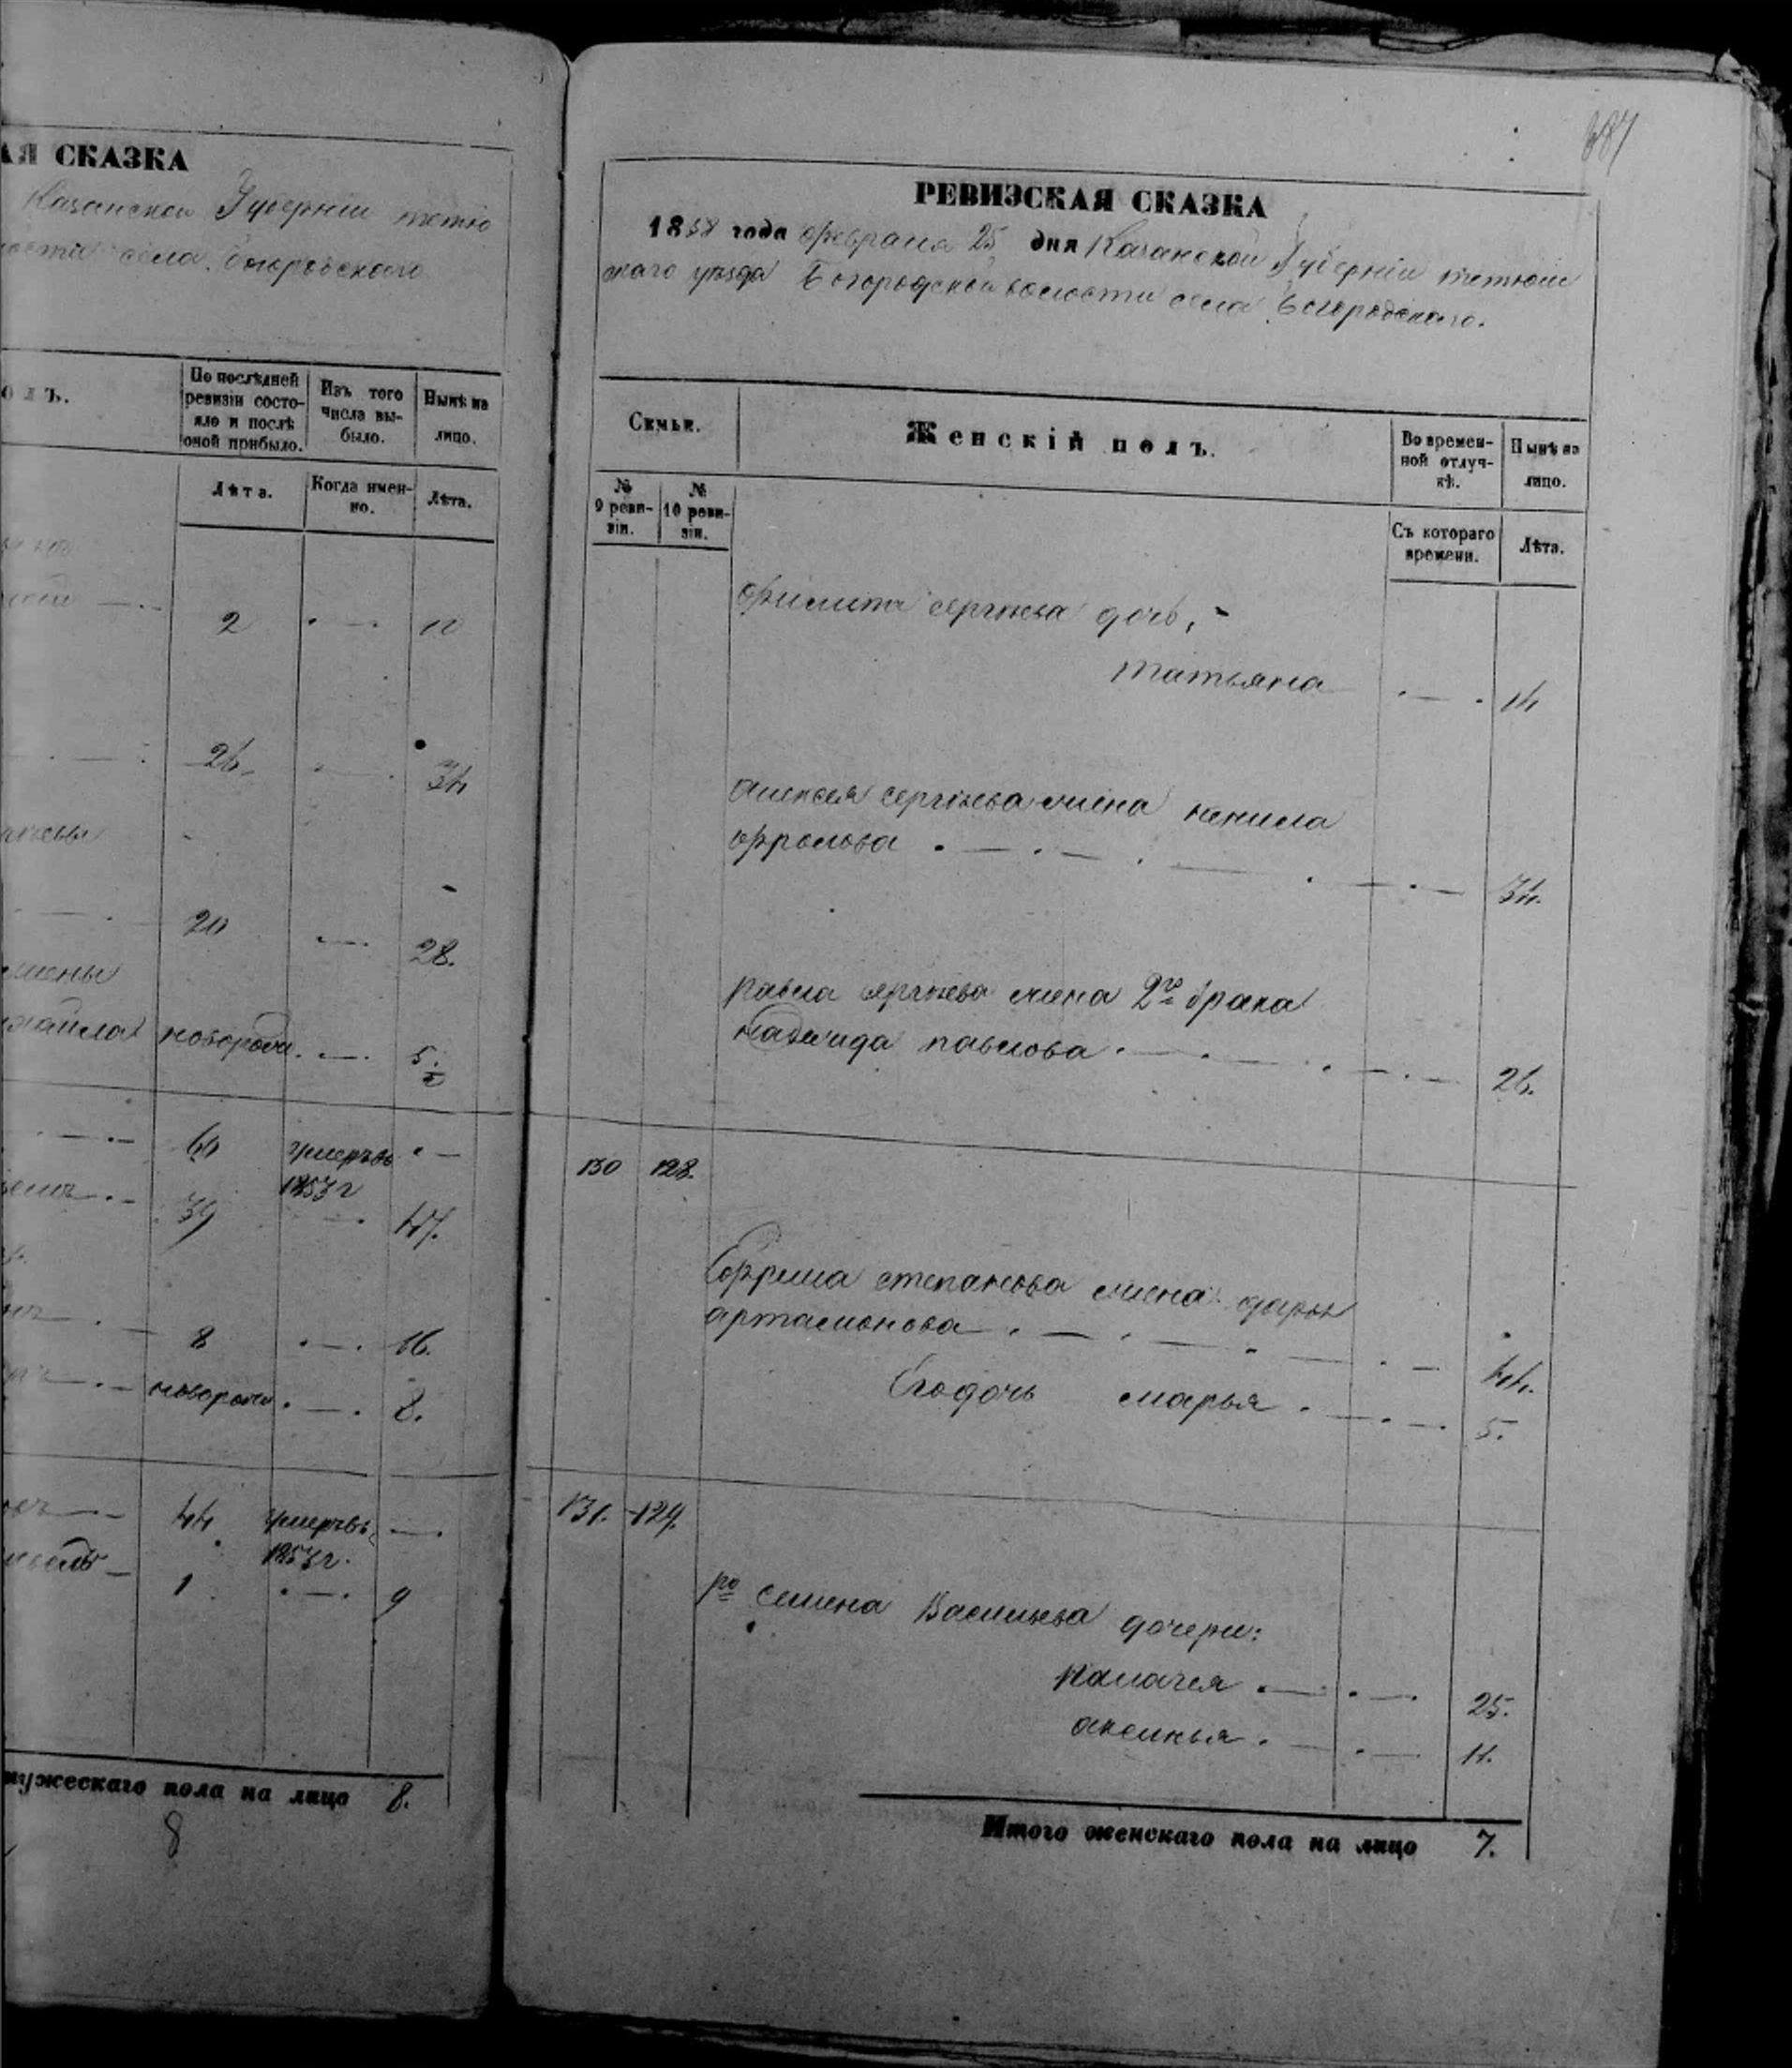 СКАЗКА
Казанской Губерніи тетю
села Богородскаго
По послѣдней ревизіи состояло и послѣ оной прибыло.
Изъ того числа выбыло.
Нынѣ на лицо.
Лѣта.
Когда именно.
Лѣта.
2
26
34
20
28.
новорожд.
5
60 умеръ въ
1853 г
39 47.
8 16.
новорожд. 8.
44 умеръ въ
1853 г.
1 9
мужескаго пола на лицо 8.
8
РЕВИЗСКАЯ СКАЗКА
1858 года февраля 25 дня Казанской Губерніи тетюш
скаго уѣзда Богородской волости села Богородскаго.
Семьи.
Женскій полъ.
Во времен-
ной отлуч-
кѣ.
Нынѣ на
лицо.
№
9 реви-
зіи.
№
10 реви-
зіи.
Съ котораго
времени.
Лѣта.
сергѣева дочь,
татьяна 14
алексея сергѣева жена ненила
фролова 34.
павла сергѣева жена 2го брака
надежда павлова 26.
130 128.
Ефрема степанова жена дарья
артамонова 44.
Его дочь марья 5.
131. 129.
семена Васильева дочери:
палагея 25.
аксинья 11.
Итого женскаго пола на лицо 7.